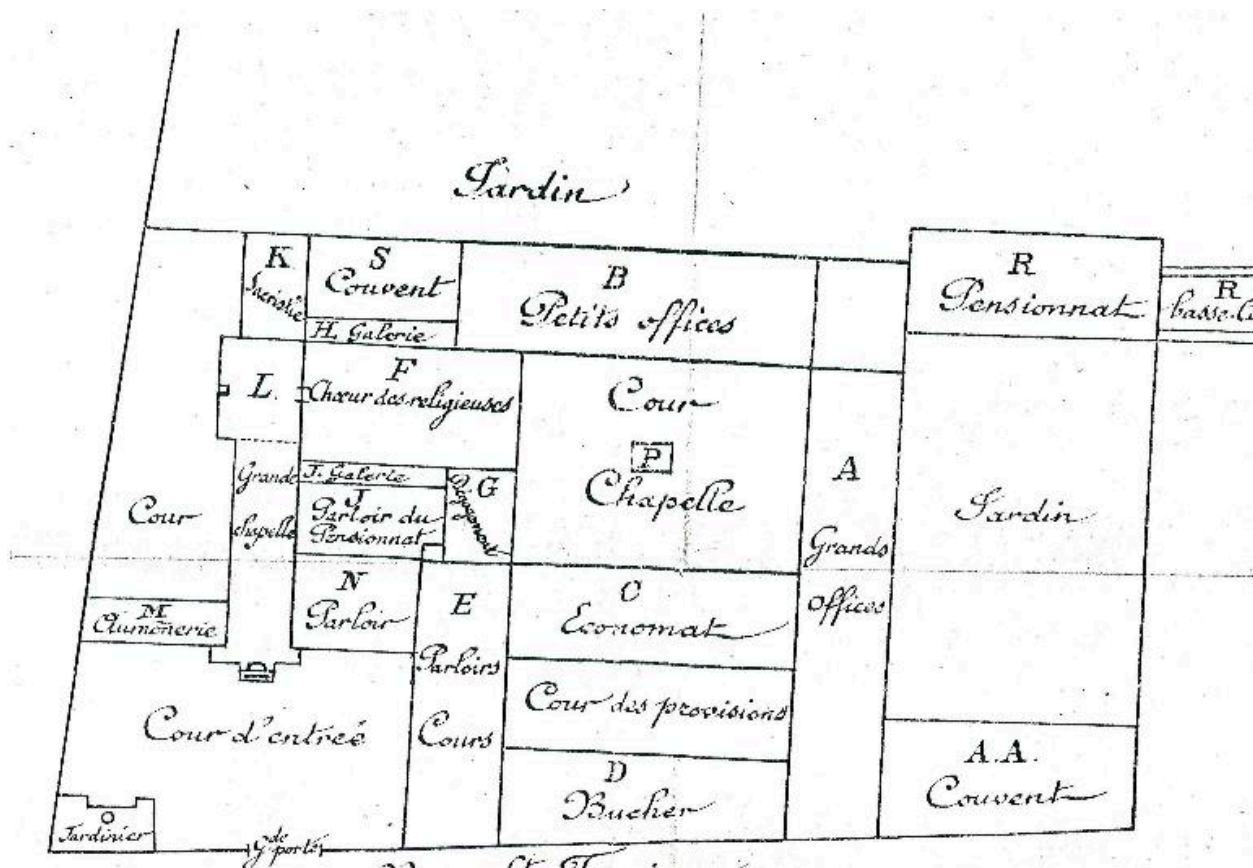 Jardin
K
Sacristie
S
Couvent
H. Galerie
B
Petits offices
R
Pensionnat
R
basse-Co
L.
F
Chœur des religieuses
Cour
P
Chapelle
A
Grands
Offices
Jardin
Cour
Grande
chapelle
J. Galerie
J
Parloir du
Pensionnat
G
M
Aumônerie
N
Parloir
E
Parloirs
Cours
C
Economat
Cour des provisions
D
Bucher
A.A.
Couvent
Cour d'entrée
O
Jardinier
Gde porte